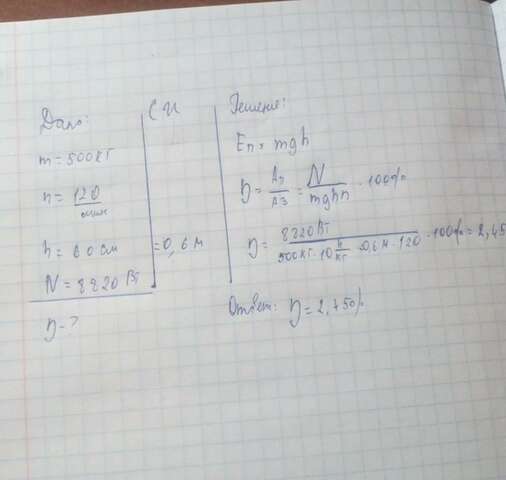 Дано:
m = 500 кг
n = 120/мин
h = 60 см
N = 8820 Вт
η - ?
СИ
= 0,6 м
Решение:
Eп = mgh
η = Aп/Aз = N/mghn · 100%
η = 8820 Вт/500 кг · 10 Н/кг · 0,6 м · 120 · 100% = 2,45
Ответ: η = 2,450%